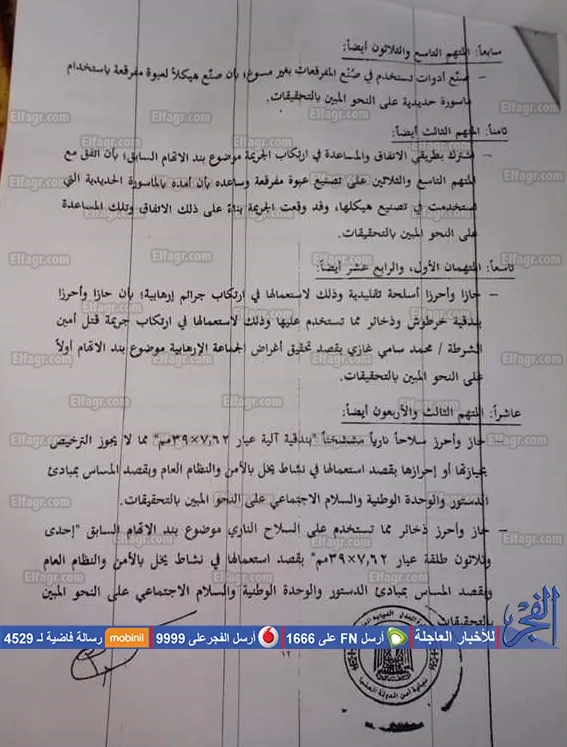 سابعاً: المتهم التاسع والثلاثون أيضاً:
– صنّع أدوات تستخدم في صُنْع المفرقعات بغير مسوغ؛ بأن صنّع هيكلاً لعبوة مفرقعة باستخدام
ماسورة حديدية على النحو المبين بالتحقيقات.
ثامناً: المتهم الثالث أيضاً:
– اشترك بطريقي الاتفاق والمساعدة في ارتكاب الجريمة موضوع بند الاتهام السابق؛ بأن اتفق مع
المتهم التاسع والثلاثين على تصنيع عبوة مفرقعة وساعده بأن أمده بالماسورة الحديدية التي
استخدمت في تصنيع هيكلها، وقد وقعت الجريمة بناءً على ذلك الاتفاق وتلك المساعدة
على النحو المبين بالتحقيقات.
تاسعاً: المتهمان الأول، والرابع عشر أيضاً:
– حازا وأحرزا أسلحة تقليدية وذلك لاستعمالها في ارتكاب جرائم إرهابية؛ بأن حازا وأحرزا
بندقية خرطوش وذخائر مما تستخدم عليها وذلك لاستعمالها في ارتكاب جريمة قتل أمين
الشرطة / محمد سامي غازي بقصد تحقيق أغراض الجماعة الإرهابية موضوع بند الاتهام أولاً
على النحو المبين بالتحقيقات.
عاشراً: المتهم الثالث والأربعون أيضاً:
– حاز وأحرز سلاحاً نارياً مششخناً "بندقية آلية عيار ٧,٦٢×٣٩مم" مما لا يجوز الترخيص
بحيازتها أو إحرازها بقصد استعمالها في نشاط يخل بالأمن والنظام العام وبقصد المساس بمبادئ
الدستور والوحدة الوطنية والسلام الاجتماعي على النحو المبين بالتحقيقات.
– حاز وأحرز ذخائر مما تستخدم على السلاح الناري موضوع بند الاتهام السابق "إحدى
وثلاثون طلقة عيار ٧,٦٢×٣٩مم" بقصد استعمالها في نشاط يخل بالأمن والنظام العام
وبقصد المساس بمبادئ الدستور والوحدة الوطنية والسلام الاجتماعي على النحو المبين
بالتحقيقات.
الفجر للأخبار العاجلة أرسل FN على 1666 أرسل الفجر على 9999 mobinil رسالة فاضية لـ 4529
١٢
نيابة أمن الدولة العليا
Elfagr.com